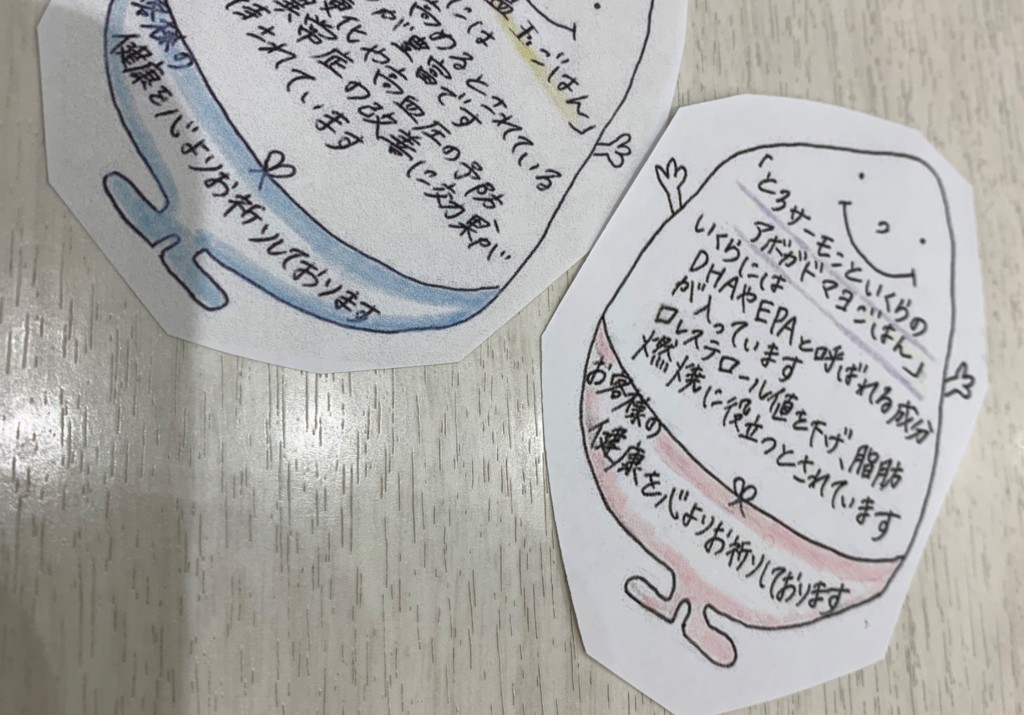 玉ごはん」
には
高めるとされている
が豊富です
硬化や高血圧の予防、
症の改善に効果が
されています
お客様の
健康を心よりお祈りしております
「とろサーモンといくらの
アボガドマヨごはん」
いくらには
DHAやEPAと呼ばれる成分
が入っています
コレステロール値を下げ、脂肪
燃焼に役立つとされています
お客様の
健康を心よりお祈りしております